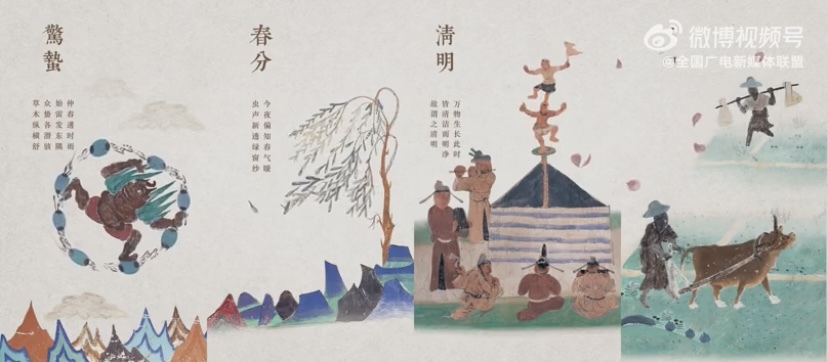 驚蟄
仲春遘时雨
始雷发东隅
众蛰各潜骇
草木纵横舒
春分
今夜偏知春气暖
虫声新透绿窗纱
清明
万物生长此时
皆清洁而明净
故谓之清明
微博视频号
@全国广电新媒体联盟